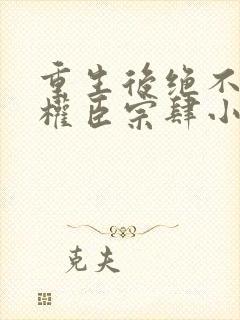 重生後绝不
權臣宗肆小
克夫